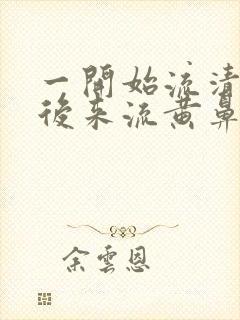 一開始流清
後来流黄鼻
余雲恩